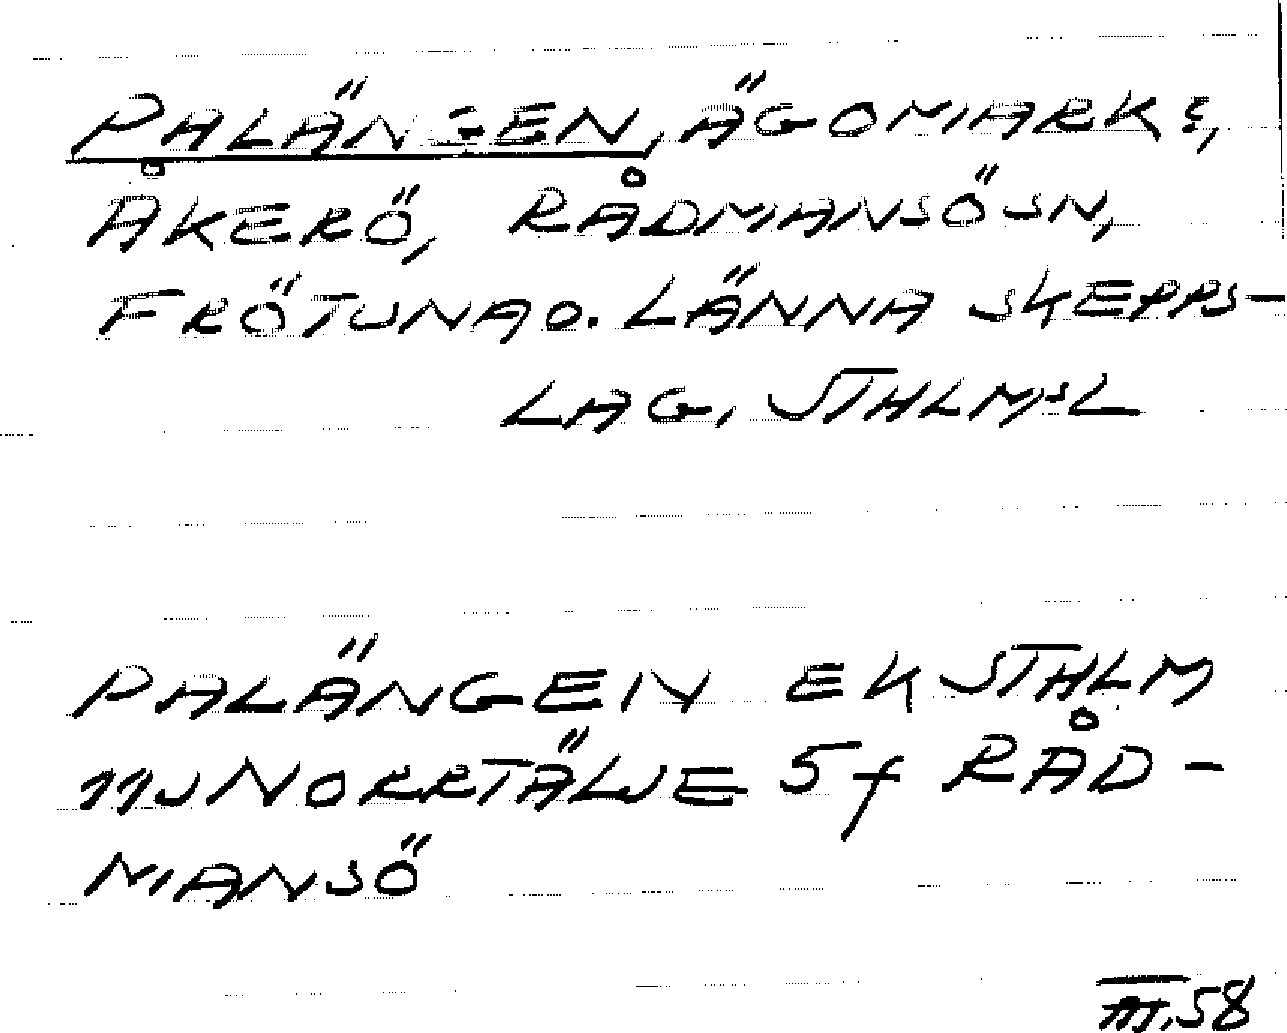 PALÄNGEN, ÄGOMARK &,
ÅKERÖ, RÅDMANSÖ SN,
FRÖTUNA O. LÄNNA SKEPPS-
LAG. STHLMS L
PALÄNGEN EK STHLM
11J NORRTÄLJE 5f RÅD-
MANSÖ
58